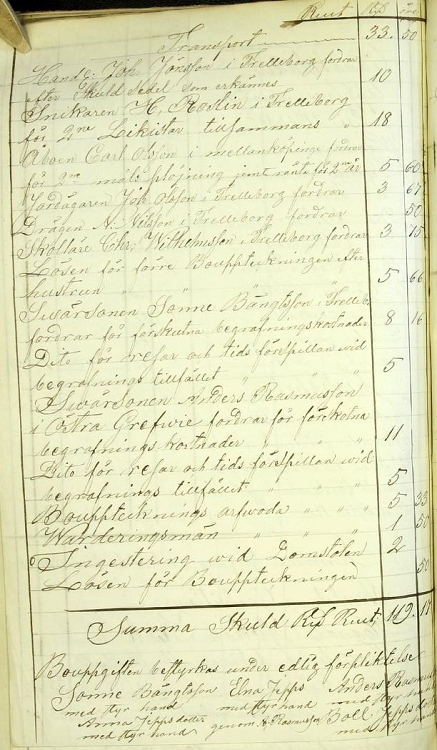 Rmt Rd öre
Transport 33. 50
Handl: Joh Jönsson i Trelleborg fordrar
efter Skuld Sedel som erkännes 10
Snikaren H. Roslin i Trelleborg
för 2ne Likistar tillsammans 18
Åboen Carl Olsson i mellanköpinge fordrar
för 2ne mål: plöjning jemt ränta för 2ne år 5 60
Jordägaren Joh Olsson i Trelleborg fordrar 3 67
Drägen N. Nilsson i Trelleborg fordrar 50
Skolläre Chr. Wilhelmsson i Trelleborg fordrar 3 75
Lösen för förre Bouppteckningen efter
hustrun " " " 5 66
Swärsonen Sonne Bängtsson i Trelleb
fordrar för förskutna begrafningskostnader 8 16
Dito för resar och tids förspillan wid
begrafnings tillfället " " 5
Swärsonen Anders Rasmusson
i Östra Grefwie fordrar för förskotna
begrafnings kostnader " " " 11
Dito för resar och tids förspillan wid
begrafnings tillfället " " " 5
Boupptecknings arfwode " " " 5 33
Warderingsmän " " " 1 50
Ingestering wid Domstolen 2
Lösen för Bouppteckningen 50
Summa Skuld Rd Rmt 119. 17
Bouppgiften bestyrkas under edlig förpliktelse
Sonne Bängtsson Elna Jepps Anders Rasmus
med styr hand med styr hand med styr hand
Anna Jepps dotter genom A Rasmusson Boll Jepps dott
med styr hand med styr hand